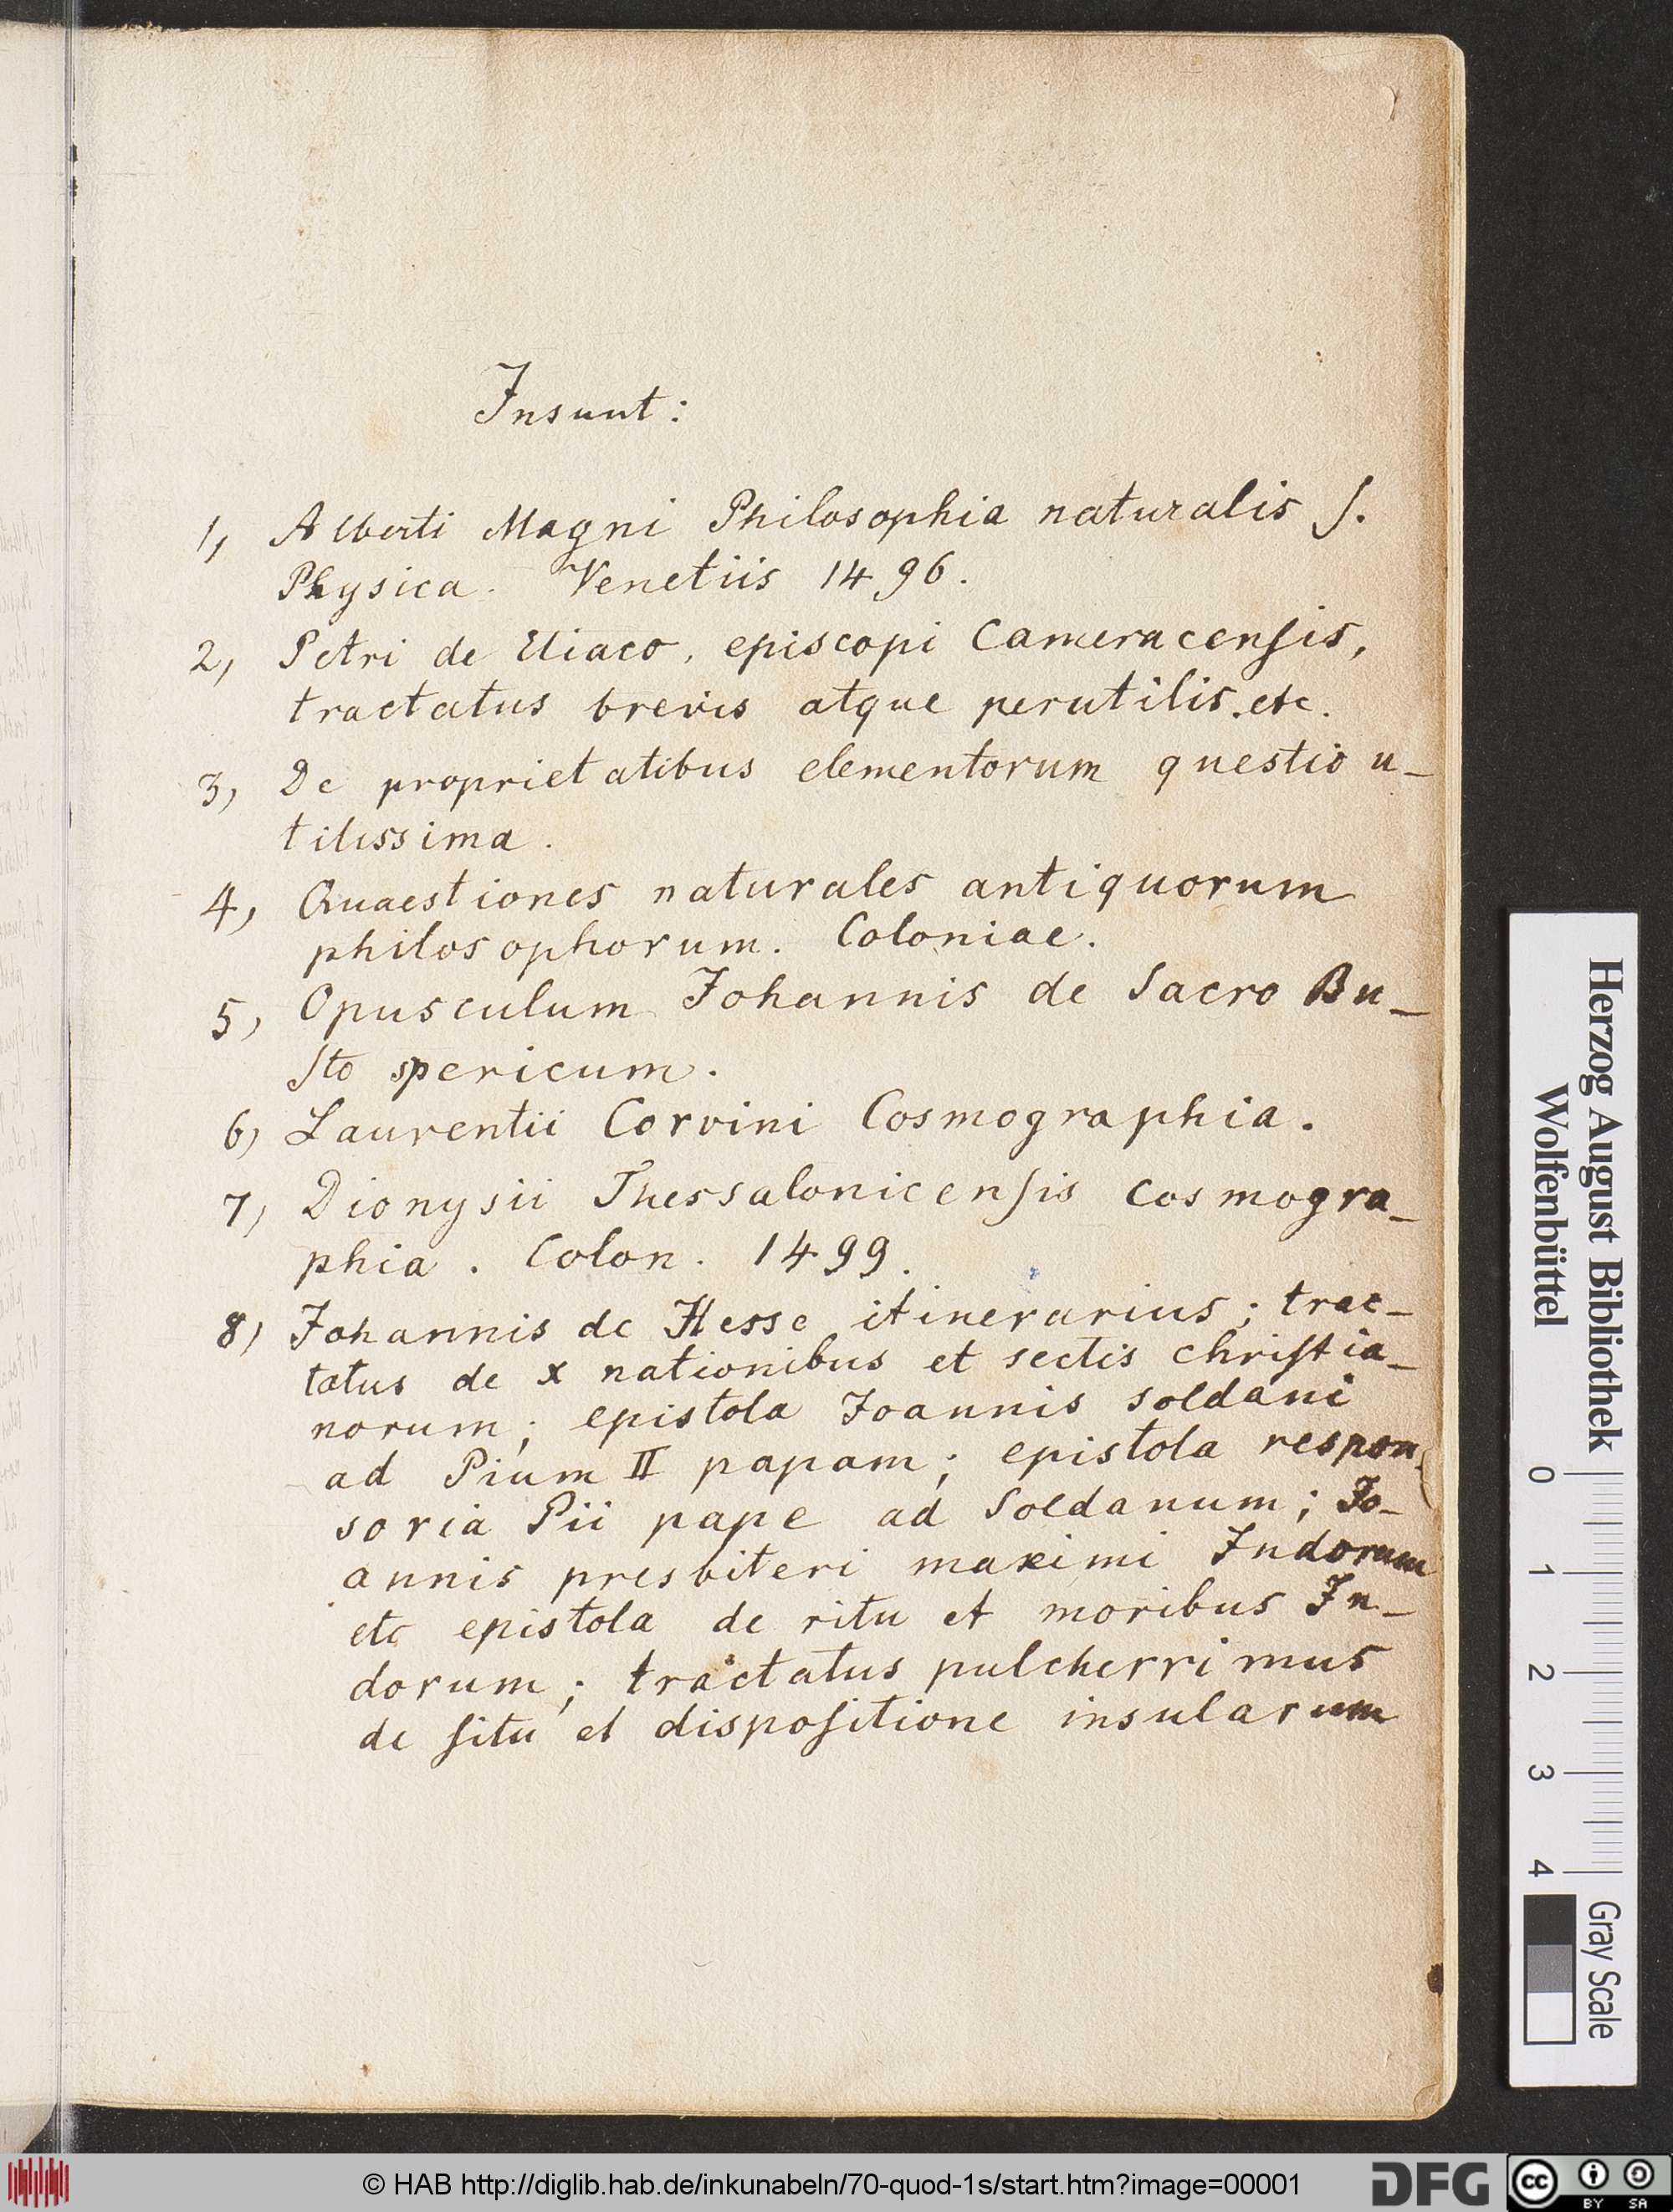 Insunt:
1, Alberti Magni Philosophia naturalis ſ.
Physica. Venetiis 1496.
2, Petri de Eliaco, episcopi Cameracenſis,
tractatus brevis atque perutilis. etc.
3, De proprietatibus elementorum questio u-
tilissima.
4, Quaestiones naturales antiquorum
philosophorum. Coloniae.
5, Opusculum Johannis de Sacro Bu-
ſto spericum.
6, Laurentii Corvini Cosmographia.
7, Dionysii Thessalonicenſis Cosmogra-
phia. Colon. 1499.
8, Johannis de Hesse itinerarius; trac-
tatus de x nationibus et sectis chriſtia-
norum; epistola Joannis Soldani
ad Pium II papam; epistola respon-
soria Pii pape ad Soldanum; Jo-
annis presbiteri maximi Indorum
etc epistola de ritu et moribus In-
dorum; tractatus pulcherrimus
de ſitu et dispoſitione insularum
Herzog August Bibliothek
Wolfenbüttel
0 1 2 3 4
Gray Scale
© HAB http://diglib.hab.de/inkunabeln/70-quod-1s/start.htm?image=00001
DFG
cc BY SA